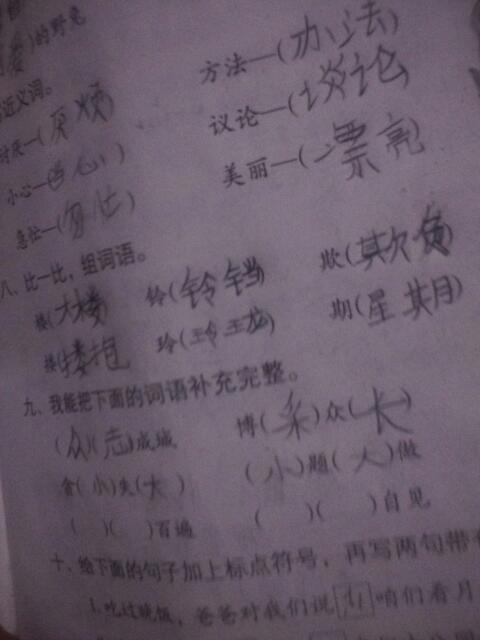 )的野兔
近义词。
方法—(办法)
讨厌—(厌烦)
议论—(谈论)
小心—(当心)
美丽—(漂亮)
急忙—(匆忙)
八、比一比，组词语。
楼(大楼) 铃(铃铛) 欺(欺负)
搂(搂抱) 玲(玲珑) 期(星期)
九、我能把下面的词语补充完整。
(众)(志)成城 博(采)众(长)
贪(小)失(大) (小)题(大)做
( )( )百遍 ( )( )自见
十、给下面的句子加上标点符号，再写两句带
1.吃过晚饭，爸爸对我们说 咱们看月